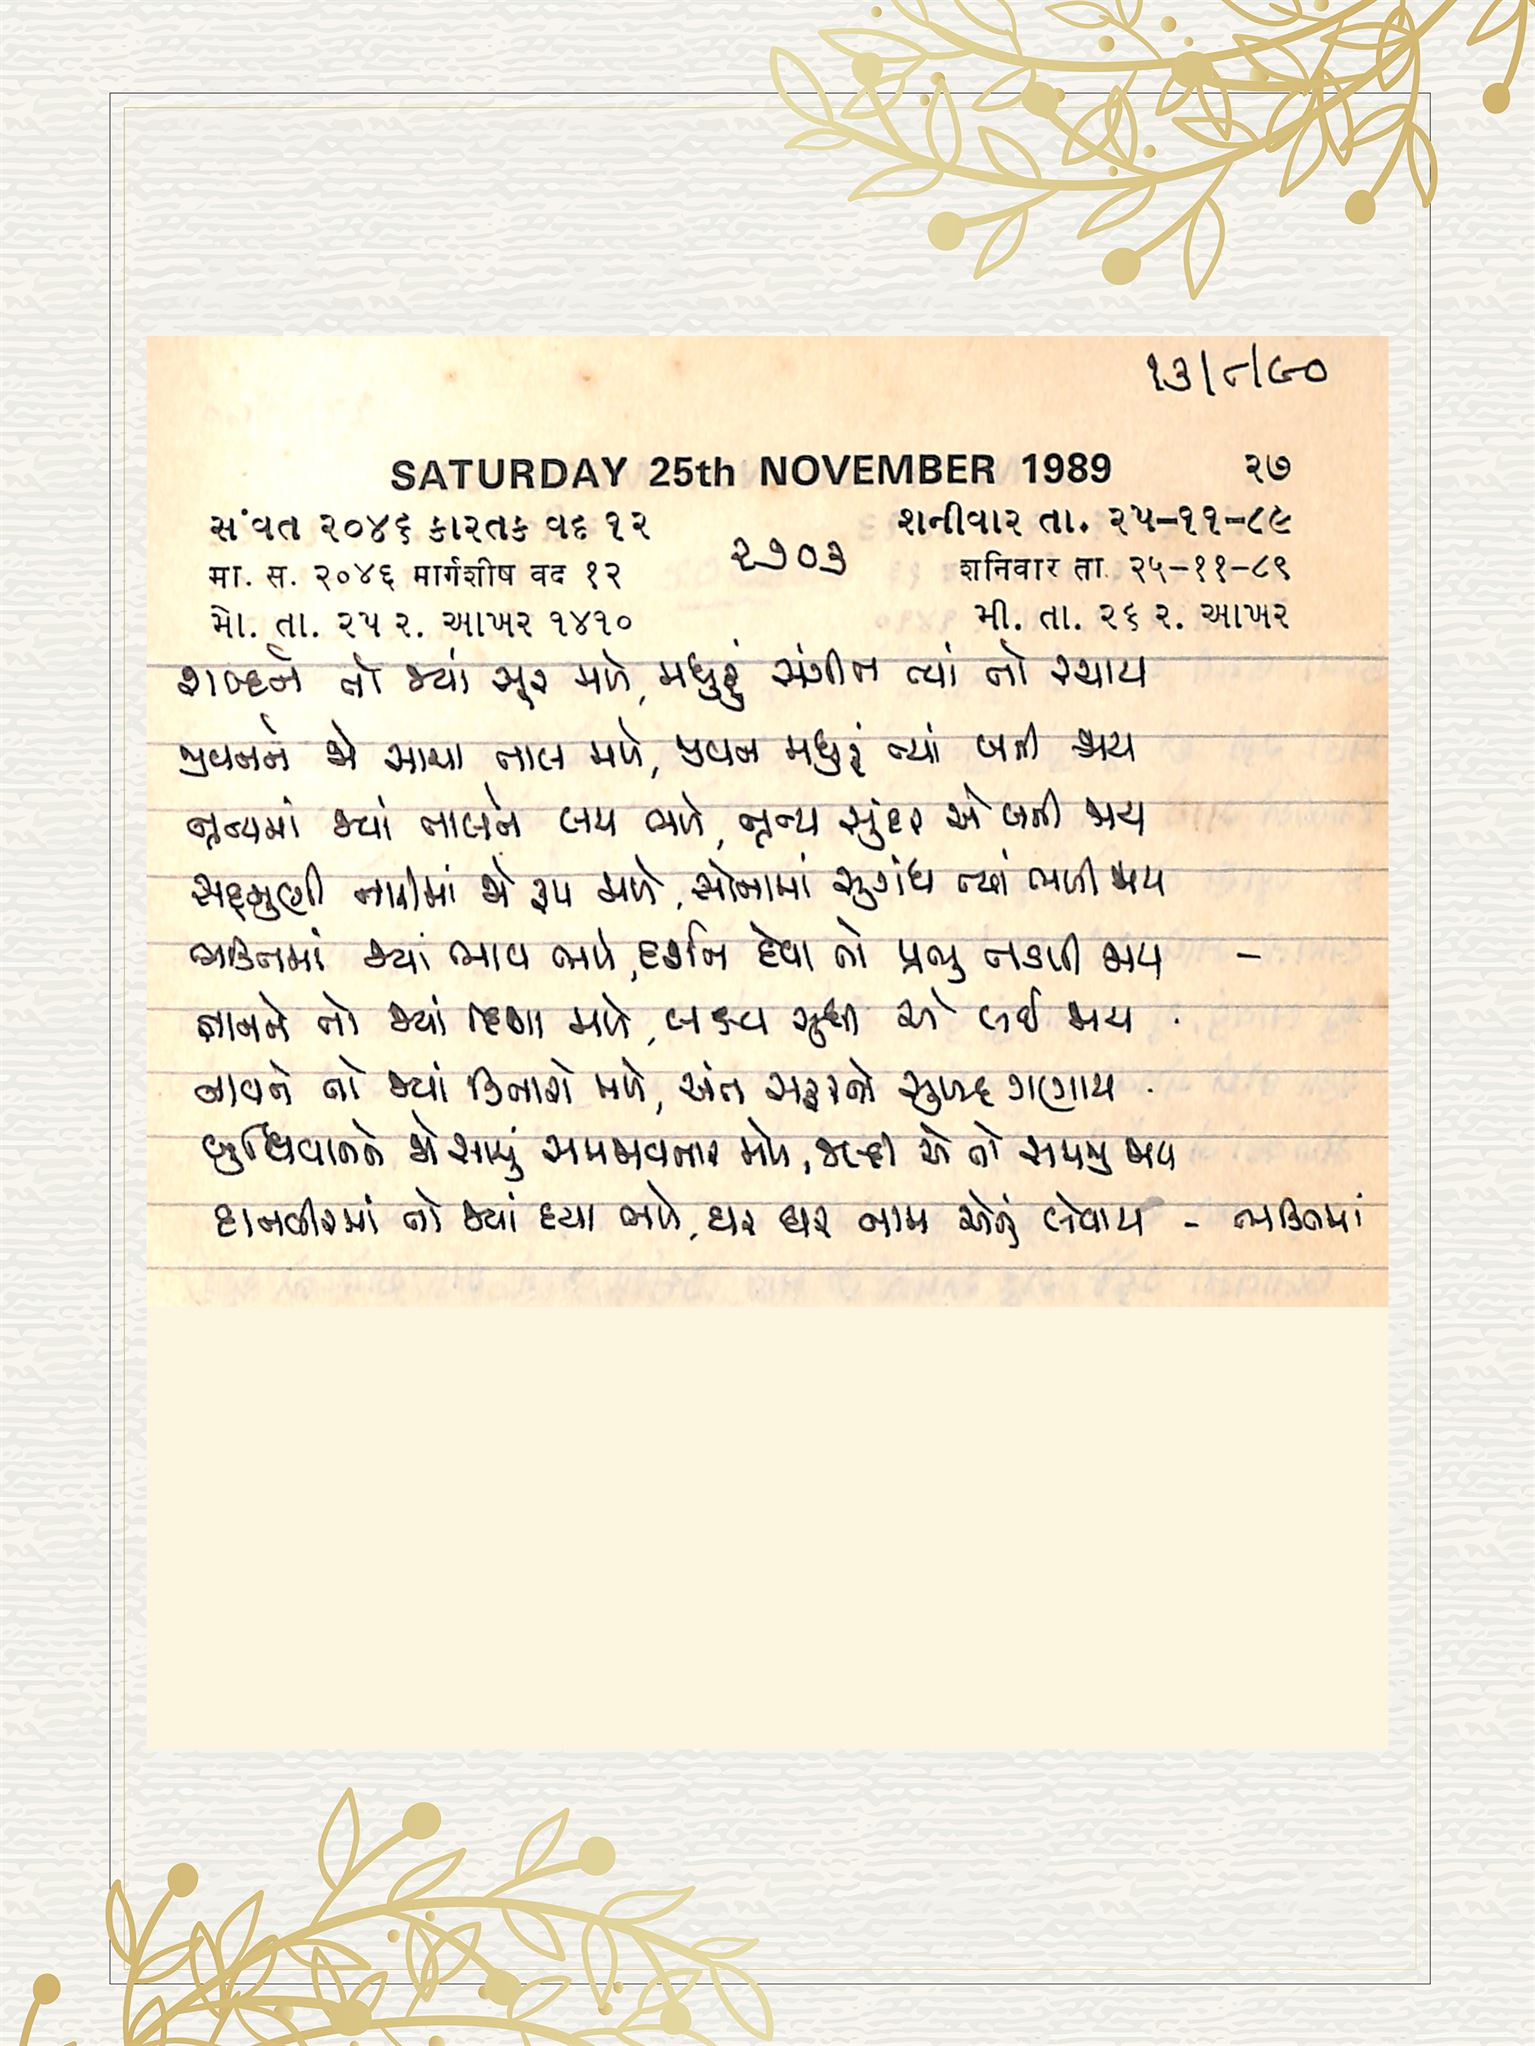 ૧૩/૮/૯૦
SATURDAY 25th NOVEMBER 1989 ૨૭
સંવત ૨૦૪૬ કારતક વદ ૧૨ શનીવાર તા. ૨૫-૧૧-૮૯
૨૭૦૩
मा. स. २०४६ मार्गशीष वद १२ शनिवार ता. २५-११-८९
મો. તા. ૨૫ ર. આખર ૧૪૧૦ મી. તા. ૨૬ ર. આખર
શબ્દને તો જ્યાં સૂર મળે, મધુરું સંગીત ત્યાં તો રચાય
જીવનને જો સાચા તાલ મળે, જીવન મધુરું ત્યાં બની જાય
નૃત્યમાં જ્યાં તાલને લય ભળે, નૃત્ય સુંદર એ બની જાય
સદ્દગુણી નારીમાં જો રૂપ મળે, સોનામાં સુગંધ ત્યાં ભળી જાય
ભક્તિમાં જ્યાં ભાવ ભળે, દર્શન દેવા તો પ્રભુ નીકળી જાય -
જ્ઞાનને તો જ્યાં દિશા મળે, લક્ષ્ય સુધી એ લઈ જાય .
નાવને તો જ્યાં કિનારો મળે, અંત સફરનો સુખદ ગણાય .
બુધ્ધિવાનને જો સાચું સમજાવનાર મળે, જલ્દી એ તો સમજી જાય
દાનવીરમાં તો જ્યાં દયા ભળે, ઘર ઘર નામ એનું લેવાય - ભક્તિમાં